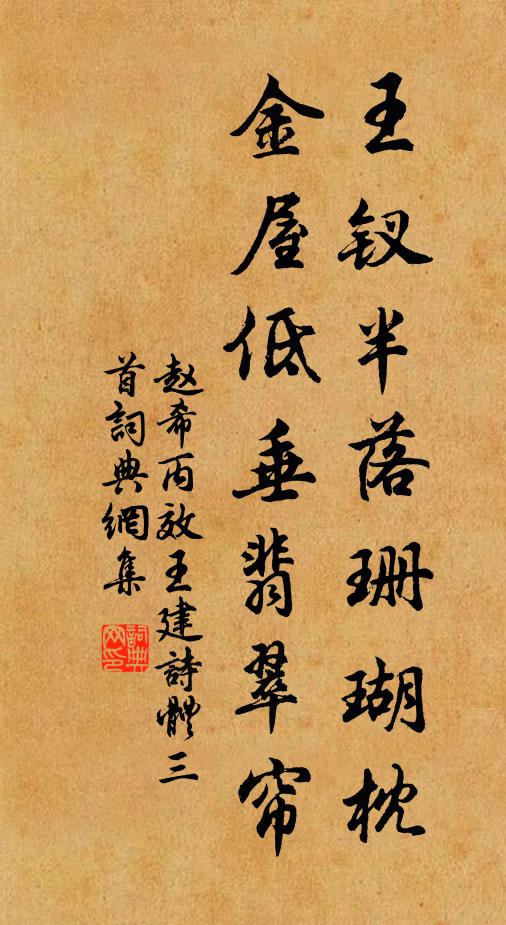 王钗半落珊瑚枕
金屋低垂翡翠帘
赵希丙效王建詩體三
首詞典網集
詞典网印